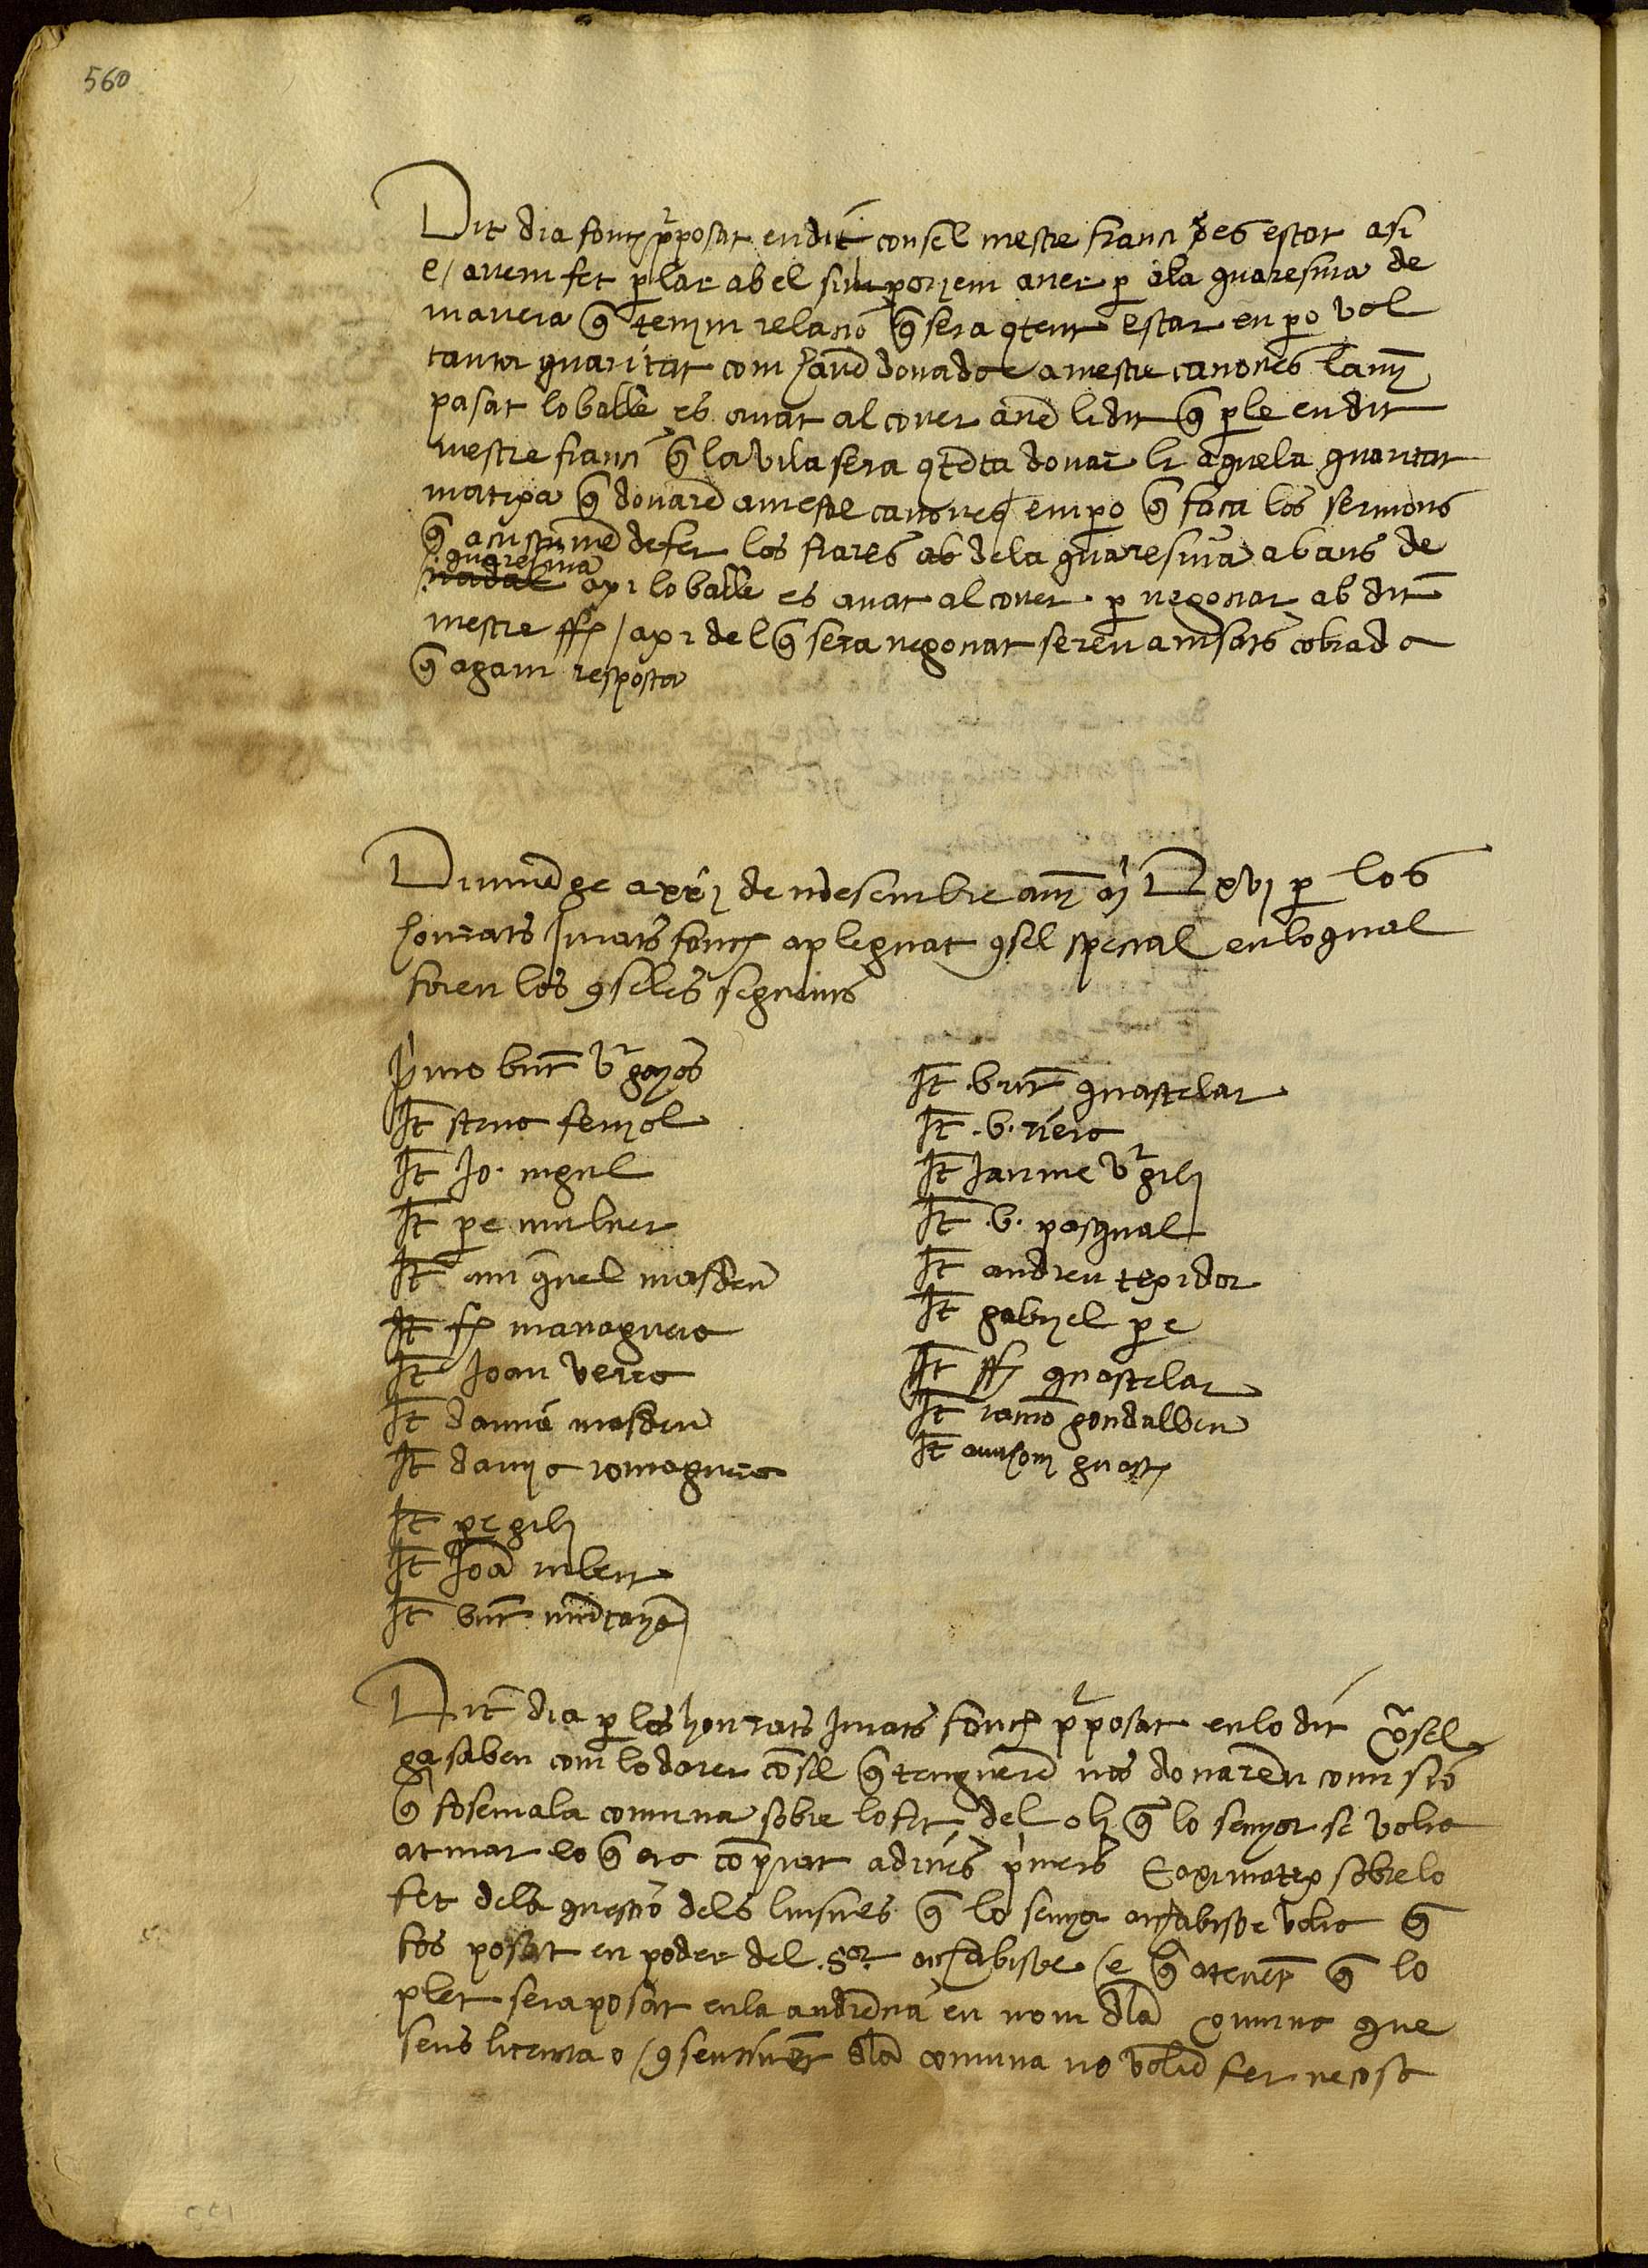 560
Dit dia fonch pposat en dit consel mestre franci pes estat asi
e / avem fet parlar ab el si poriem aver per a la guaresma de
manera que tenim relasio que sera qtent estar enpero vol
tanta quaritat com havē donada a mestre canones lany
pasat lo balle es anat alcover avē li dit que parle en dit
mestre franci que la vila sera qtēta donar li aquela quaritat
matexa que donarē a mestre canones empero que faca los sermons
que acustumē de fer los frares ab de la guaresma abans de
guaresma
nadal axi lo balle es anat alcover per negosiar ab dit
mestre ff / axi del que sera negosiat seren avisats cobrada
que agam resposta
Diumēge a xxj de ndesembre any mj D xvj per los
honrats Jurats fonch apleguat qsel spesial en lo qual
foren los qseles seguens
Primo bnt Vrgayos
It struc fenyol
It Jo. mgul
It pe muluer
It miquel masdeu
It ff managuera
It Joan verra
It damia masdeu
It danya romaguera
It pe gili
It Joā
It bnt mūtanyā
It bnt guastelar
It .b. riera
It Jaume Vrgili
It .b. pasqual
It andreu texidor
It gabryel pe
It ff guastelar
It ramō gondalbeu
It antony guasch
Dit dia per los honrats Jurats fonch pposat en lo dit cōsel
ja saben com lo darer cōsel que tenguerē nos donarē comisio
que fosem a la comuna sobre lo fet del oli que lo senyor se volia
aturar lo que era cōprat a dinés pimers E aximatex sobre lo
fet dela questio dels luismes que lo senyor archabisbe volia que
fos posat en poder del .Sor. archabisbe / e que atenēt que lo
plet sera posat en la audiēcia en nom dla comuna que
sens licensia o / qsentimēt dla comuna no voliē fer ne cosa